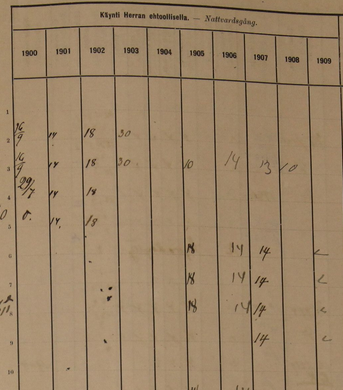 Käynti Herran ehtoollisella. — Nattvardsgång.
1900 1901 1902 1903 1904 1905 1906 1907 1908 1909
1
2 16/9 14 18 30
3 16/9 14 18 30 10 14 13 10
4 29/7 14 18
5 0. 14. 18
6 18 14 14
7 18 14 14
8 18 14 14
9 14
10